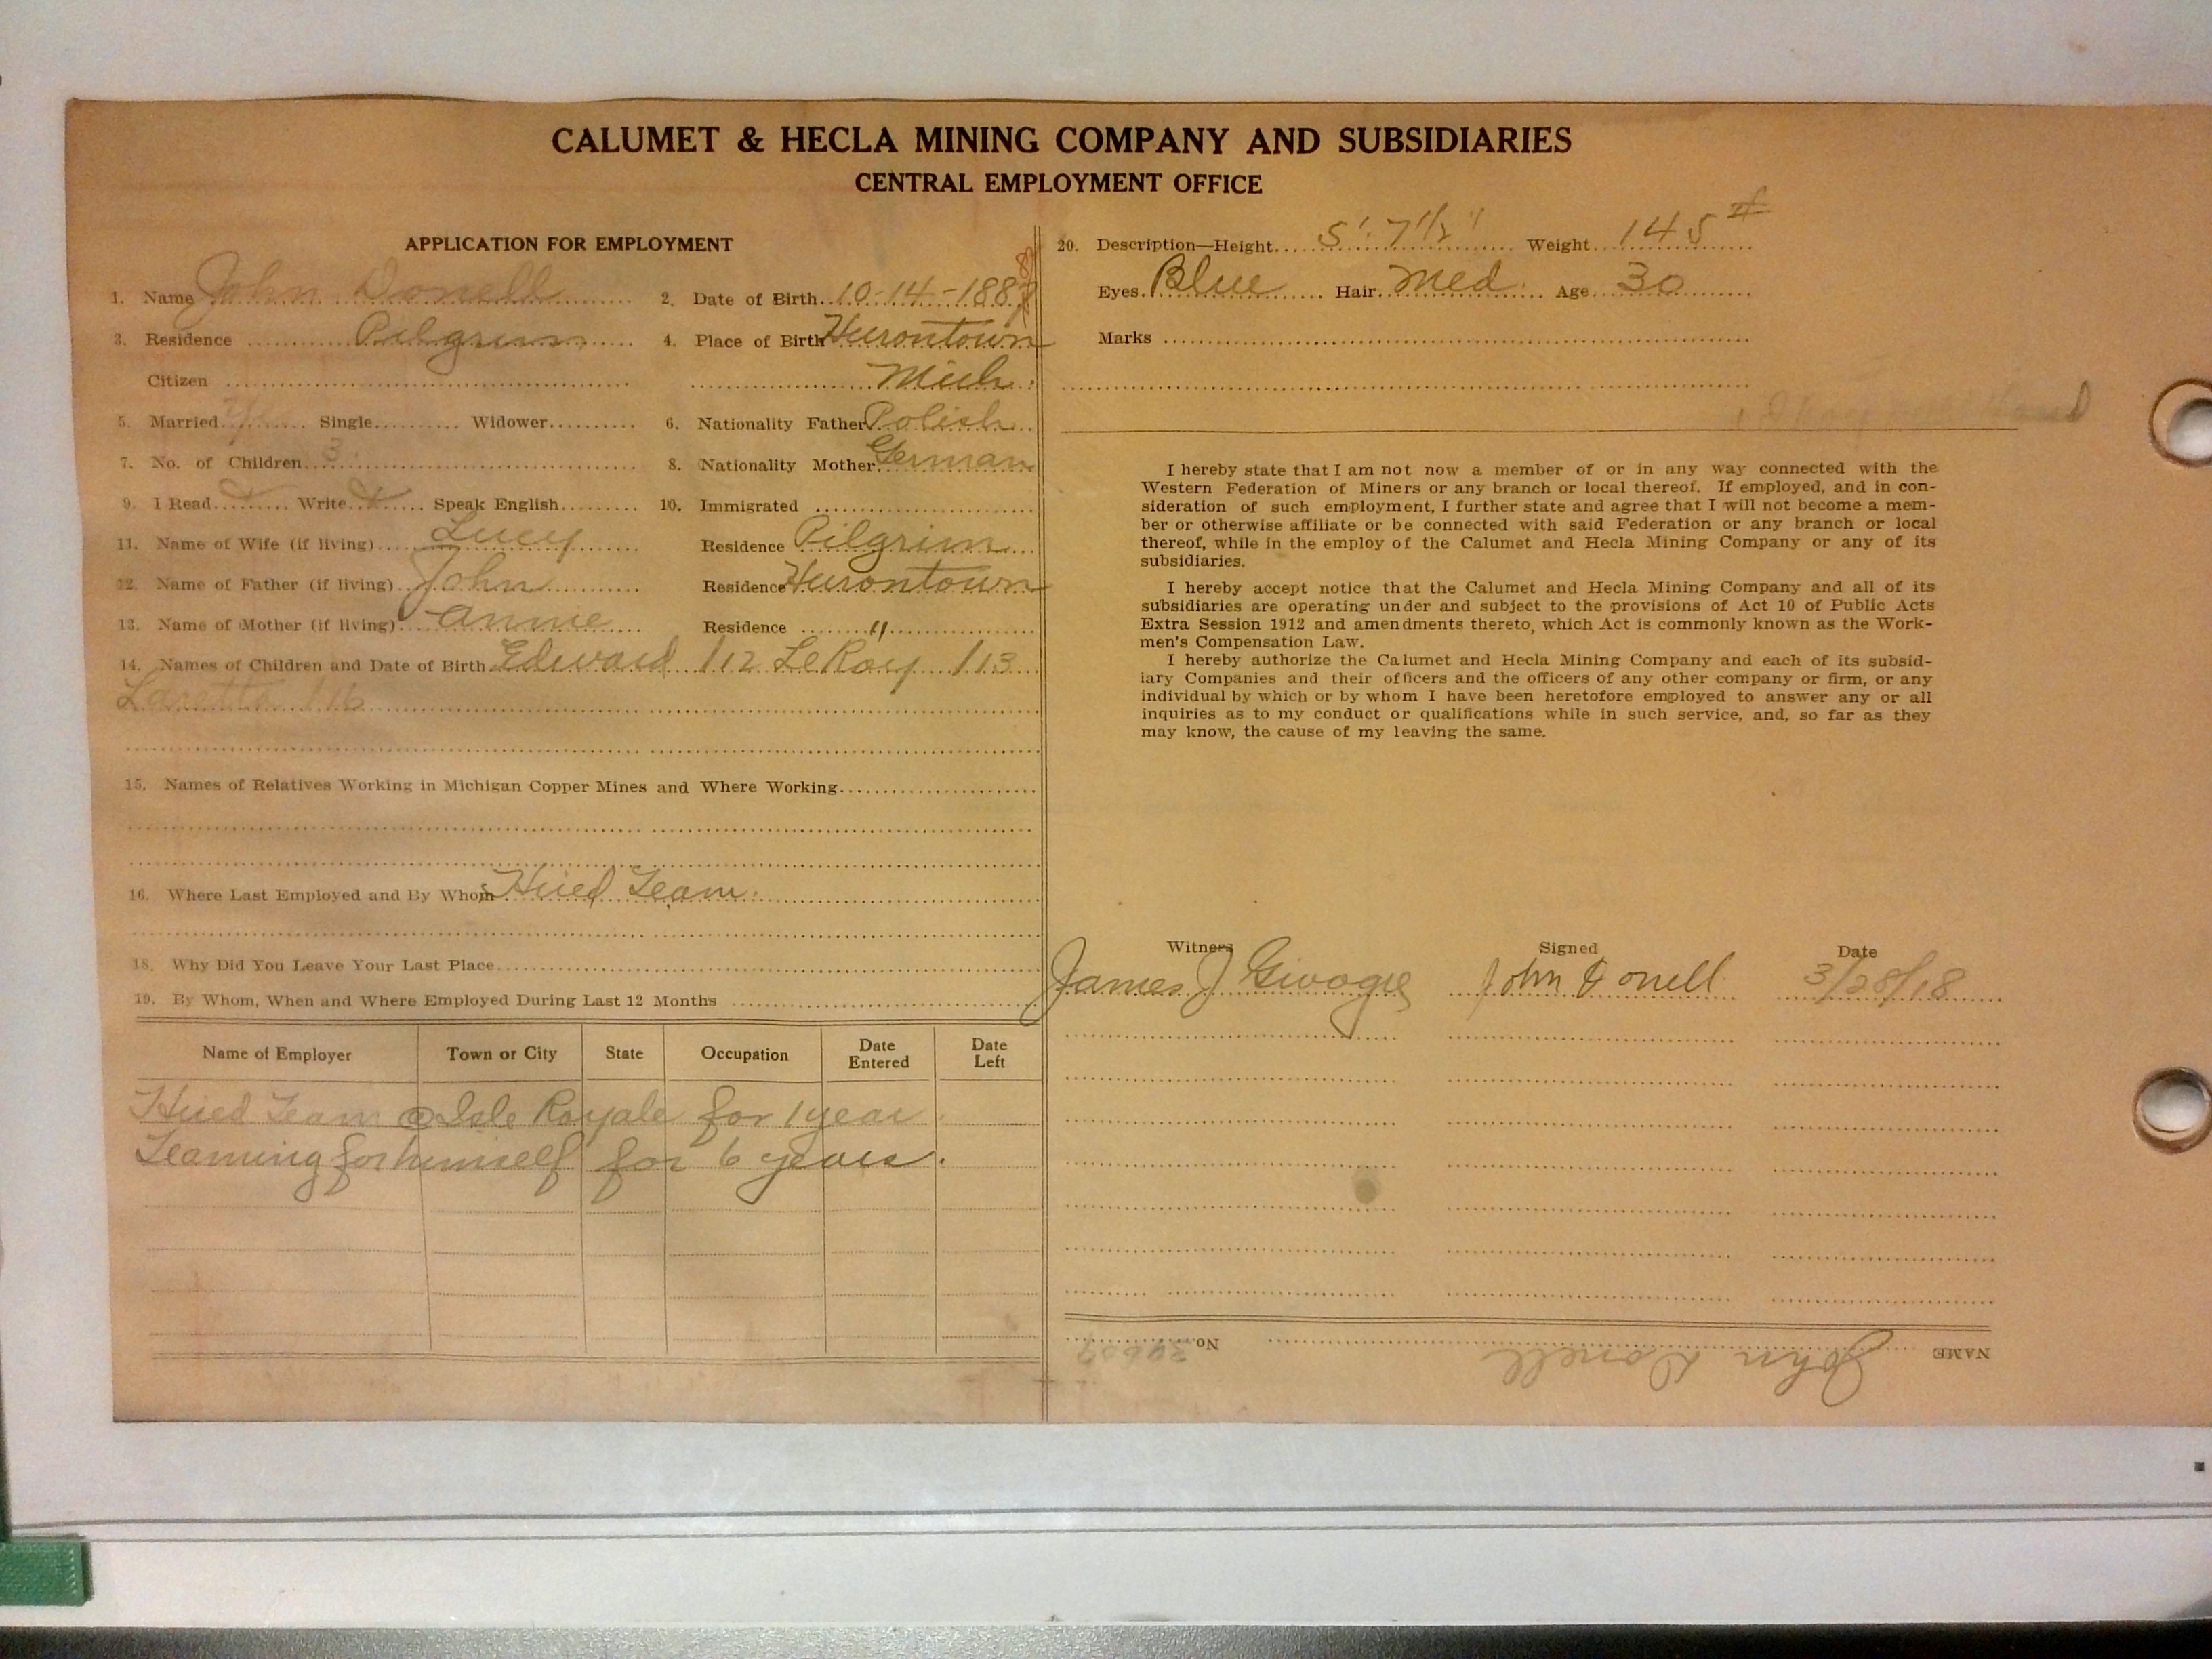 CALUMET & HECLA MINING COMPANY AND SUBSIDIARIES
CENTRAL EMPLOYMENT OFFICE
APPLICATION FOR EMPLOYMENT
1. Name John Donell 2. Date of Birth 10-14-188
3. Residence Pilgrim 4. Place of Birth Hurontown
Citizen Mich.
5. Married Yes Single Widower 6. Nationality Father Polish
7. No. of Children 3 8. Nationality Mother German
9. I Read x Write x Speak English 10. Immigrated
11. Name of Wife (if living) Lucy Residence Pilgrim
12. Name of Father (if living) John Residence Hurontown
13. Name of Mother (if living) Annie Residence "
14. Names of Children and Date of Birth Edward /12 LeRoy /13
Loretta /16
15. Names of Relatives Working in Michigan Copper Mines and Where Working
16. Where Last Employed and By Whom Hired Team.
18. Why Did You Leave Your Last Place
19. By Whom, When and Where Employed During Last 12 Months
Name of Employer Town or City State Occupation Date Entered Date Left
Hired Team @ Isle Royale for 1 year.
Teaming for himself for 6 years.
20. Description—Height 5' 7 1/2" Weight 145 #
Eyes Blue Hair Med. Age 30
Marks
I hereby state that I am not now a member of or in any way connected with the
Western Federation of Miners or any branch or local thereof. If employed, and in con-
sideration of such employment, I further state and agree that I will not become a mem-
ber or otherwise affiliate or be connected with said Federation or any branch or local
thereof, while in the employ of the Calumet and Hecla Mining Company or any of its
subsidiaries.
I hereby accept notice that the Calumet and Hecla Mining Company and all of its
subsidiaries are operating under and subject to the provisions of Act 10 of Public Acts
Extra Session 1912 and amendments thereto, which Act is commonly known as the Work-
men's Compensation Law.
I hereby authorize the Calumet and Hecla Mining Company and each of its subsid-
iary Companies and their officers and the officers of any other company or firm, or any
individual by which or by whom I have been heretofore employed to answer any or all
inquiries as to my conduct or qualifications while in such service, and, so far as they
may know, the cause of my leaving the same.
Witness Signed Date
James J John Donell 3/28/18
NAME John Donell No.